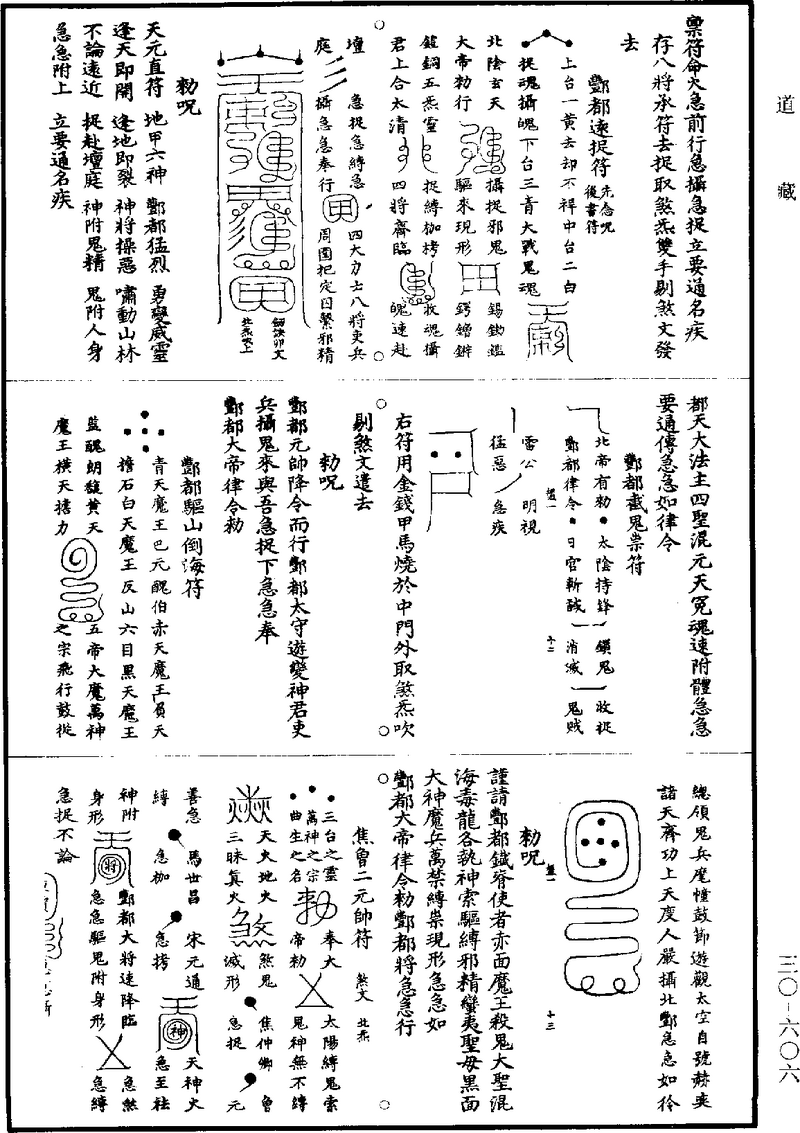 道藏
三〇—六〇六
稟符命火急前行急攝急捉立要通名疾
存八將承符去捉取煞炁雙手剔煞文發
去
酆都速捉符先念呪後書符
上台一黃去却不祥中台二白
捉魂攝魄下台三青大戰鬼魂
北陰玄天 攝捉邪鬼
大帝勑行 驅來現形
鎚鋼五炁靈 捉縛枷拷
收魂攝
君上合太清 四將齋臨 魄速赴
壇 急捉急縛急 四大力士八將吏兵
庭 攝急急奉行 周圍把定囚繫邪精
劒訣卯文
北炁吹上
勑呪
天元直符 地甲六神 酆都猛烈 勇變威靈
逢天即開 逢地即裂 神將操惡 嘯動山林
不論遠近 捉赴壇庭 神附鬼精 鬼附人身
急急附上 立要通名疾
都天大法主四聖混元天冤魂速附體急急
要通傳急急如律令
酆都截鬼祟符
北帝有勑 太陰持鋒 鎖鬼 收捉
酆都律令 日宮斬馘 消滅 鬼賊
雷公 明視
猛惡 急疾
右符用金錢甲馬燒於中門外取煞炁吹
剔煞文遣去
勑呪
酆都元帥降令而行酆都太守遊變神君吏
兵攝鬼來與吾急捉下急急奉
酆都大帝律令勑
酆都驅山倒海符
青天魔王巴元醜伯赤天魔王負天
擔石白天魔王反山六目黑天魔王
藍醜朗馥黃天 五帝大魔萬神
魔王橫天擔力 之宗飛行鼓從
總領鬼兵麾幢鼓節遊觀太空自號赫奕
諸天齊功上天度人嚴攝北酆急急如律
勑呪
謹請酆都鐵脊使者赤面魔王殺鬼大聖混
海毒龍各執神索驅縛邪精蠻夷聖母黑面
大神魔兵萬禁縛祟現形急急如
酆都大帝律令勑酆都將急急行
焦曾二元帥符 煞文 北炁
三台之靈 奉大 太陽縛鬼索
萬神之宗
曲生之名 帝勑 鬼神無不縛
天火地火 煞鬼 焦仲卿 曾
三昧真火 滅形 急捉 元
善急 馬世昌 宋元通 天神火
縛 急枷 急拷 急至祛
神附 酆都大將速降臨 急煞
身形 急急驅鬼附身形 急縛
急捉不論